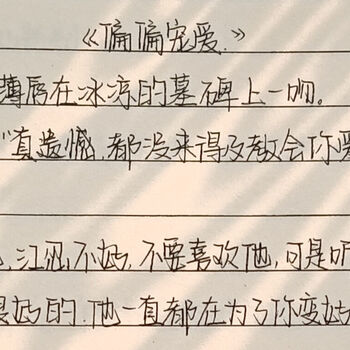 《偏偏宠爱.》
薄唇在冰凉的墓碑上一吻。
"真遗憾.都没来得及教会你爱
江忍不好,不要喜欢他,可是听
很好的.他一直都在为了你变好